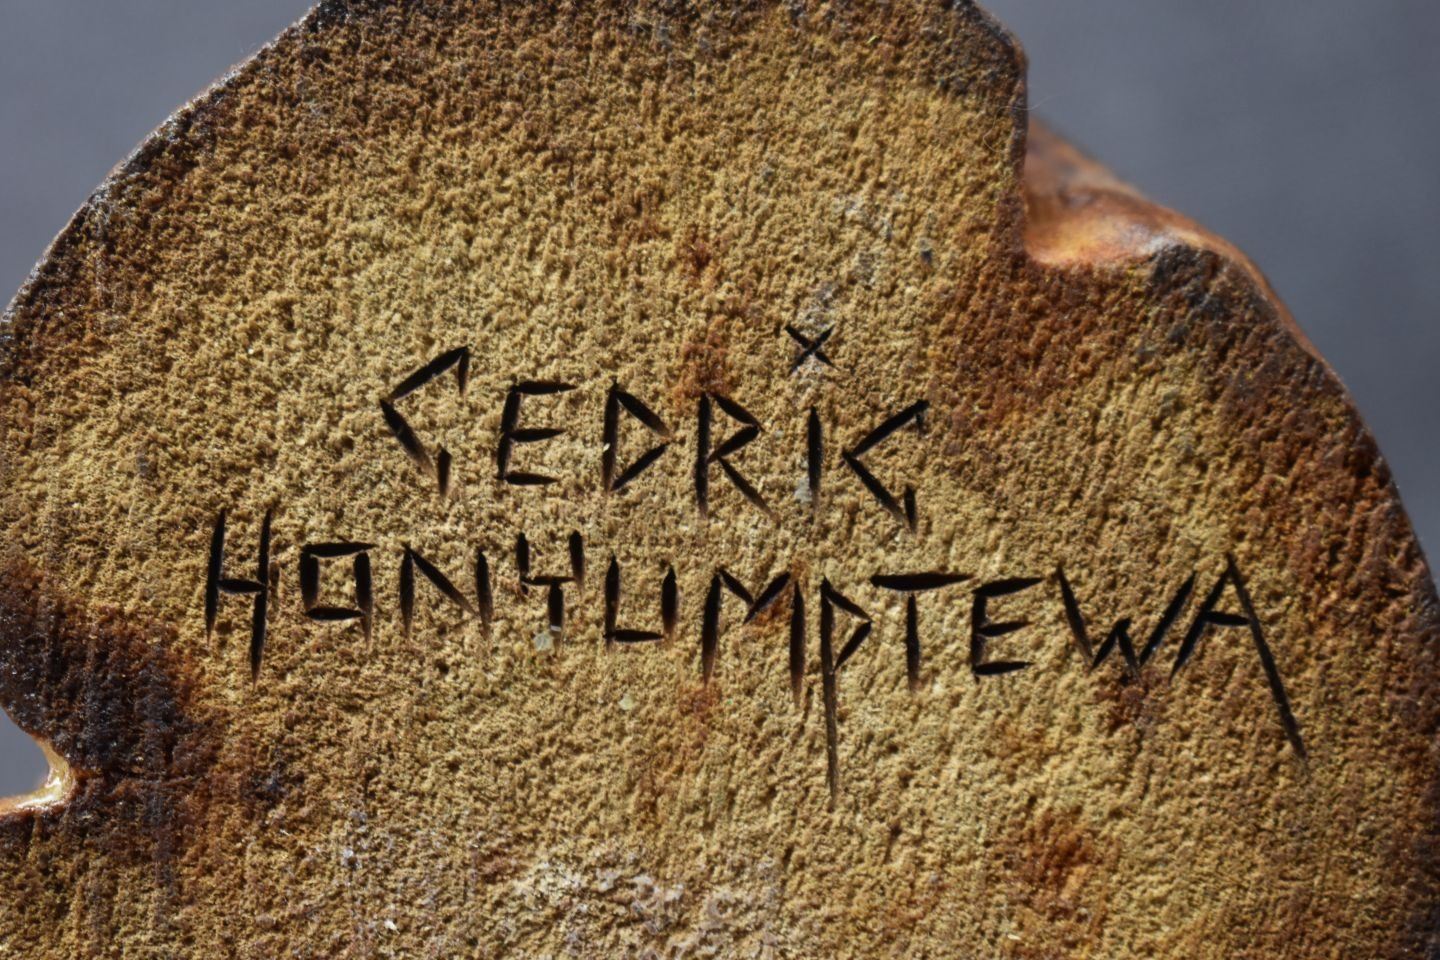 CEDRIC
HONYUMPTEWA